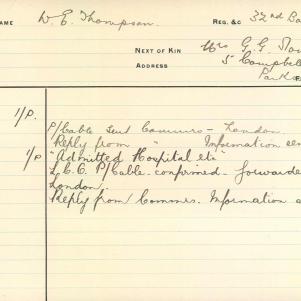 NAME W. E. Thompson. REG. &c 32nd Ba
NEXT OF KIN Mrs G. G.
ADDRESS 5 Campbell
Park
1/P. P/Cable sent Commrs - London.
Reply from " Information
1/P "Admitted Hospital etc
L.C.C. P/Cable confirmed forwarde
London.
Reply from Commrs. Information a